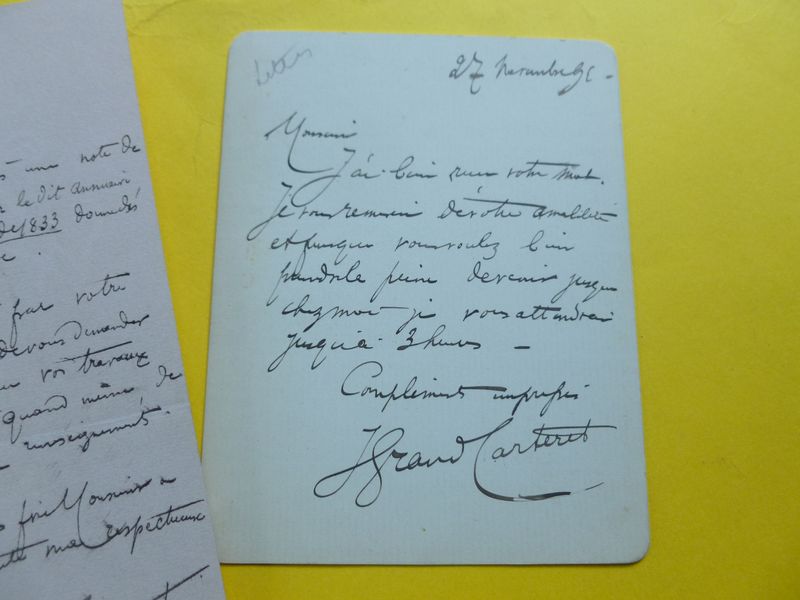 une note de
le dit annuaire
de 1833 donnés
votre
de vous demander
vos travaux
quand même de
renseignements.
Monsieur
ma respectueuse
27 novembre
Monsieur
J'ai bien reçu votre mot.
Je vous remercie de votre amabilité
et puisque vous voulez bien
prendre la peine de venir jusque
chez moi je vous attendrai
jusqu'à 3 heures –
Compliments empressés
J Grand Carteret